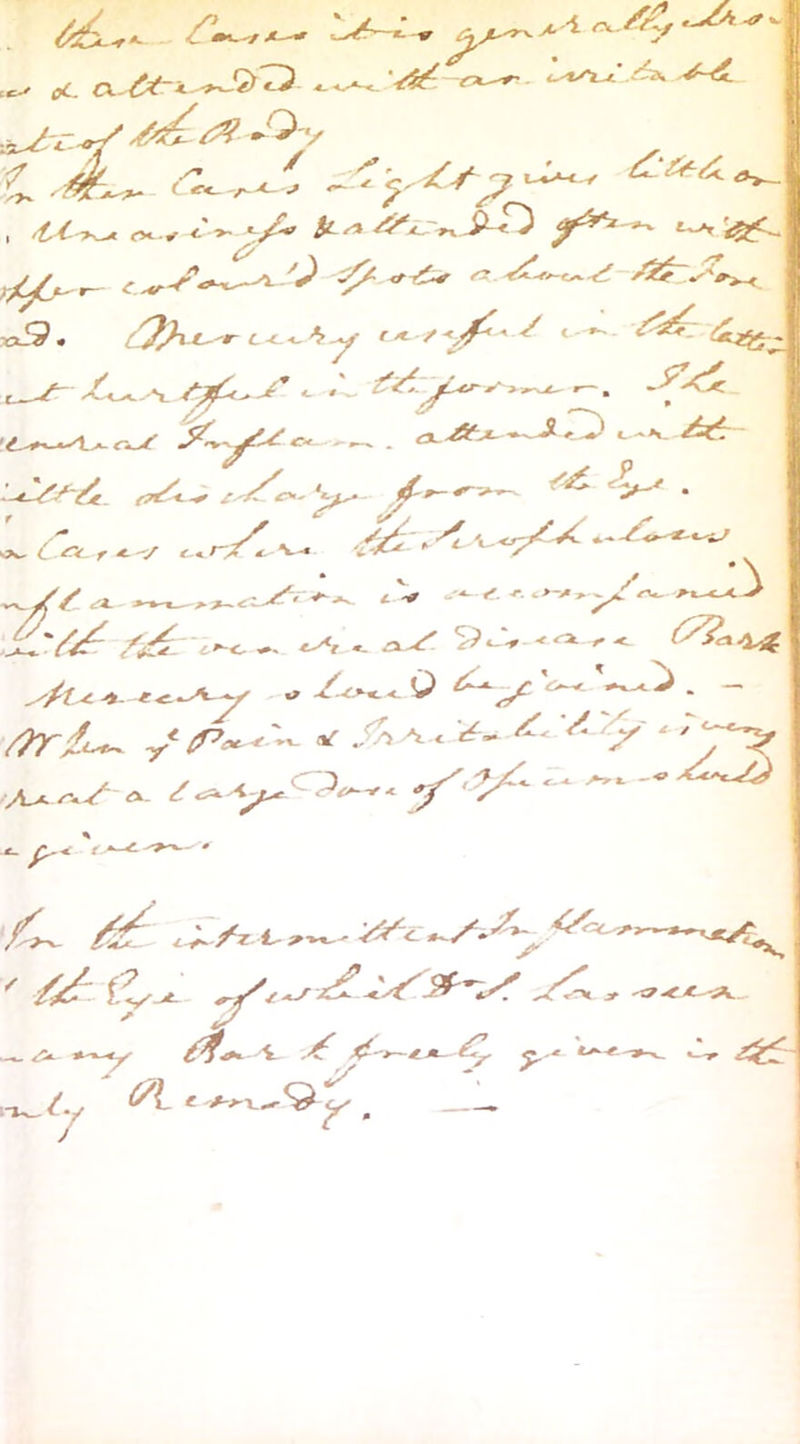 these Cases it is generally
& attended with an irritable
of the Body
In these Cases Light gives little or
Uneasiness & attended often with
colour'd Spots about the Fore
Mercury useful in the latter
hurtful in the former. The
Inflam. attended with
little discharge from the Eye.
Cases where the Scrophulous
is accompanied
with the venereal Disease Bark
Mercury should be joined. —
When yͤ Pain & Irritability is very
a large Dose of Opium should
given.
In the intermittent Inflammation
the Eye of which Dr S. has seen
Bark freely given is the
Remedy. —